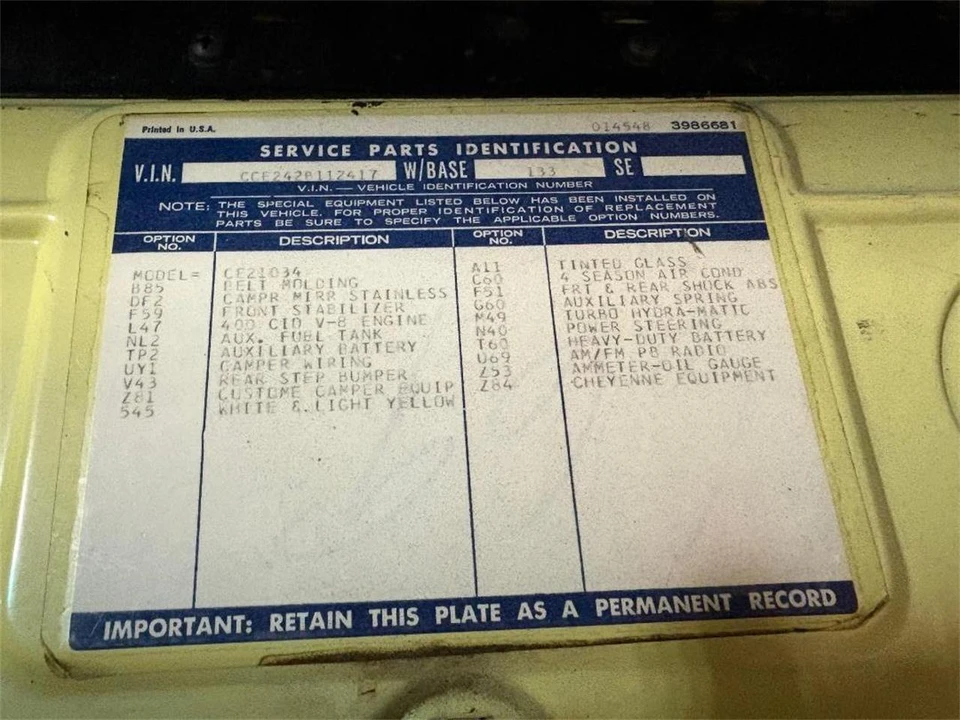 Printed in U.S.A. 014548 3986681
SERVICE PARTS IDENTIFICATION
V.I.N. CCE242B112417 W/BASE 133 SE
V.I.N. — VEHICLE IDENTIFICATION NUMBER
NOTE: THE SPECIAL EQUIPMENT LISTED BELOW HAS BEEN INSTALLED ON
THIS VEHICLE. FOR PROPER IDENTIFICATION OF REPLACEMENT
PARTS BE SURE TO SPECIFY THE APPLICABLE OPTION NUMBERS.
OPTION NO. DESCRIPTION
MODEL= CE21034
B85 BELT MOLDING
DF2 CAMPR MIRR STAINLESS
F59 FRONT STABILIZER
L47 400 CID V-8 ENGINE
NL2 AUX. FUEL TANK
TP2 AUXILIARY BATTERY
UY1 CAMPER WIRING
V43 REAR STEP BUMPER
Z81 CUSTOME CAMPER EQUIP
545 WHITE & LIGHT YELLOW
OPTION NO. DESCRIPTION
A11 TINTED GLASS
C60 4 SEASON AIR COND
F51 FRT & REAR SHOCK ABS
G60 AUXILIARY SPRING
M49 TURBO HYDRA-MATIC
N40 POWER STEERING
T60 HEAVY-DUTY BATTERY
U69 AM/FM PB RADIO
Z53 AMMETER-OIL GAUGE
Z84 CHEYENNE EQUIPMENT
IMPORTANT: RETAIN THIS PLATE AS A PERMANENT RECORD